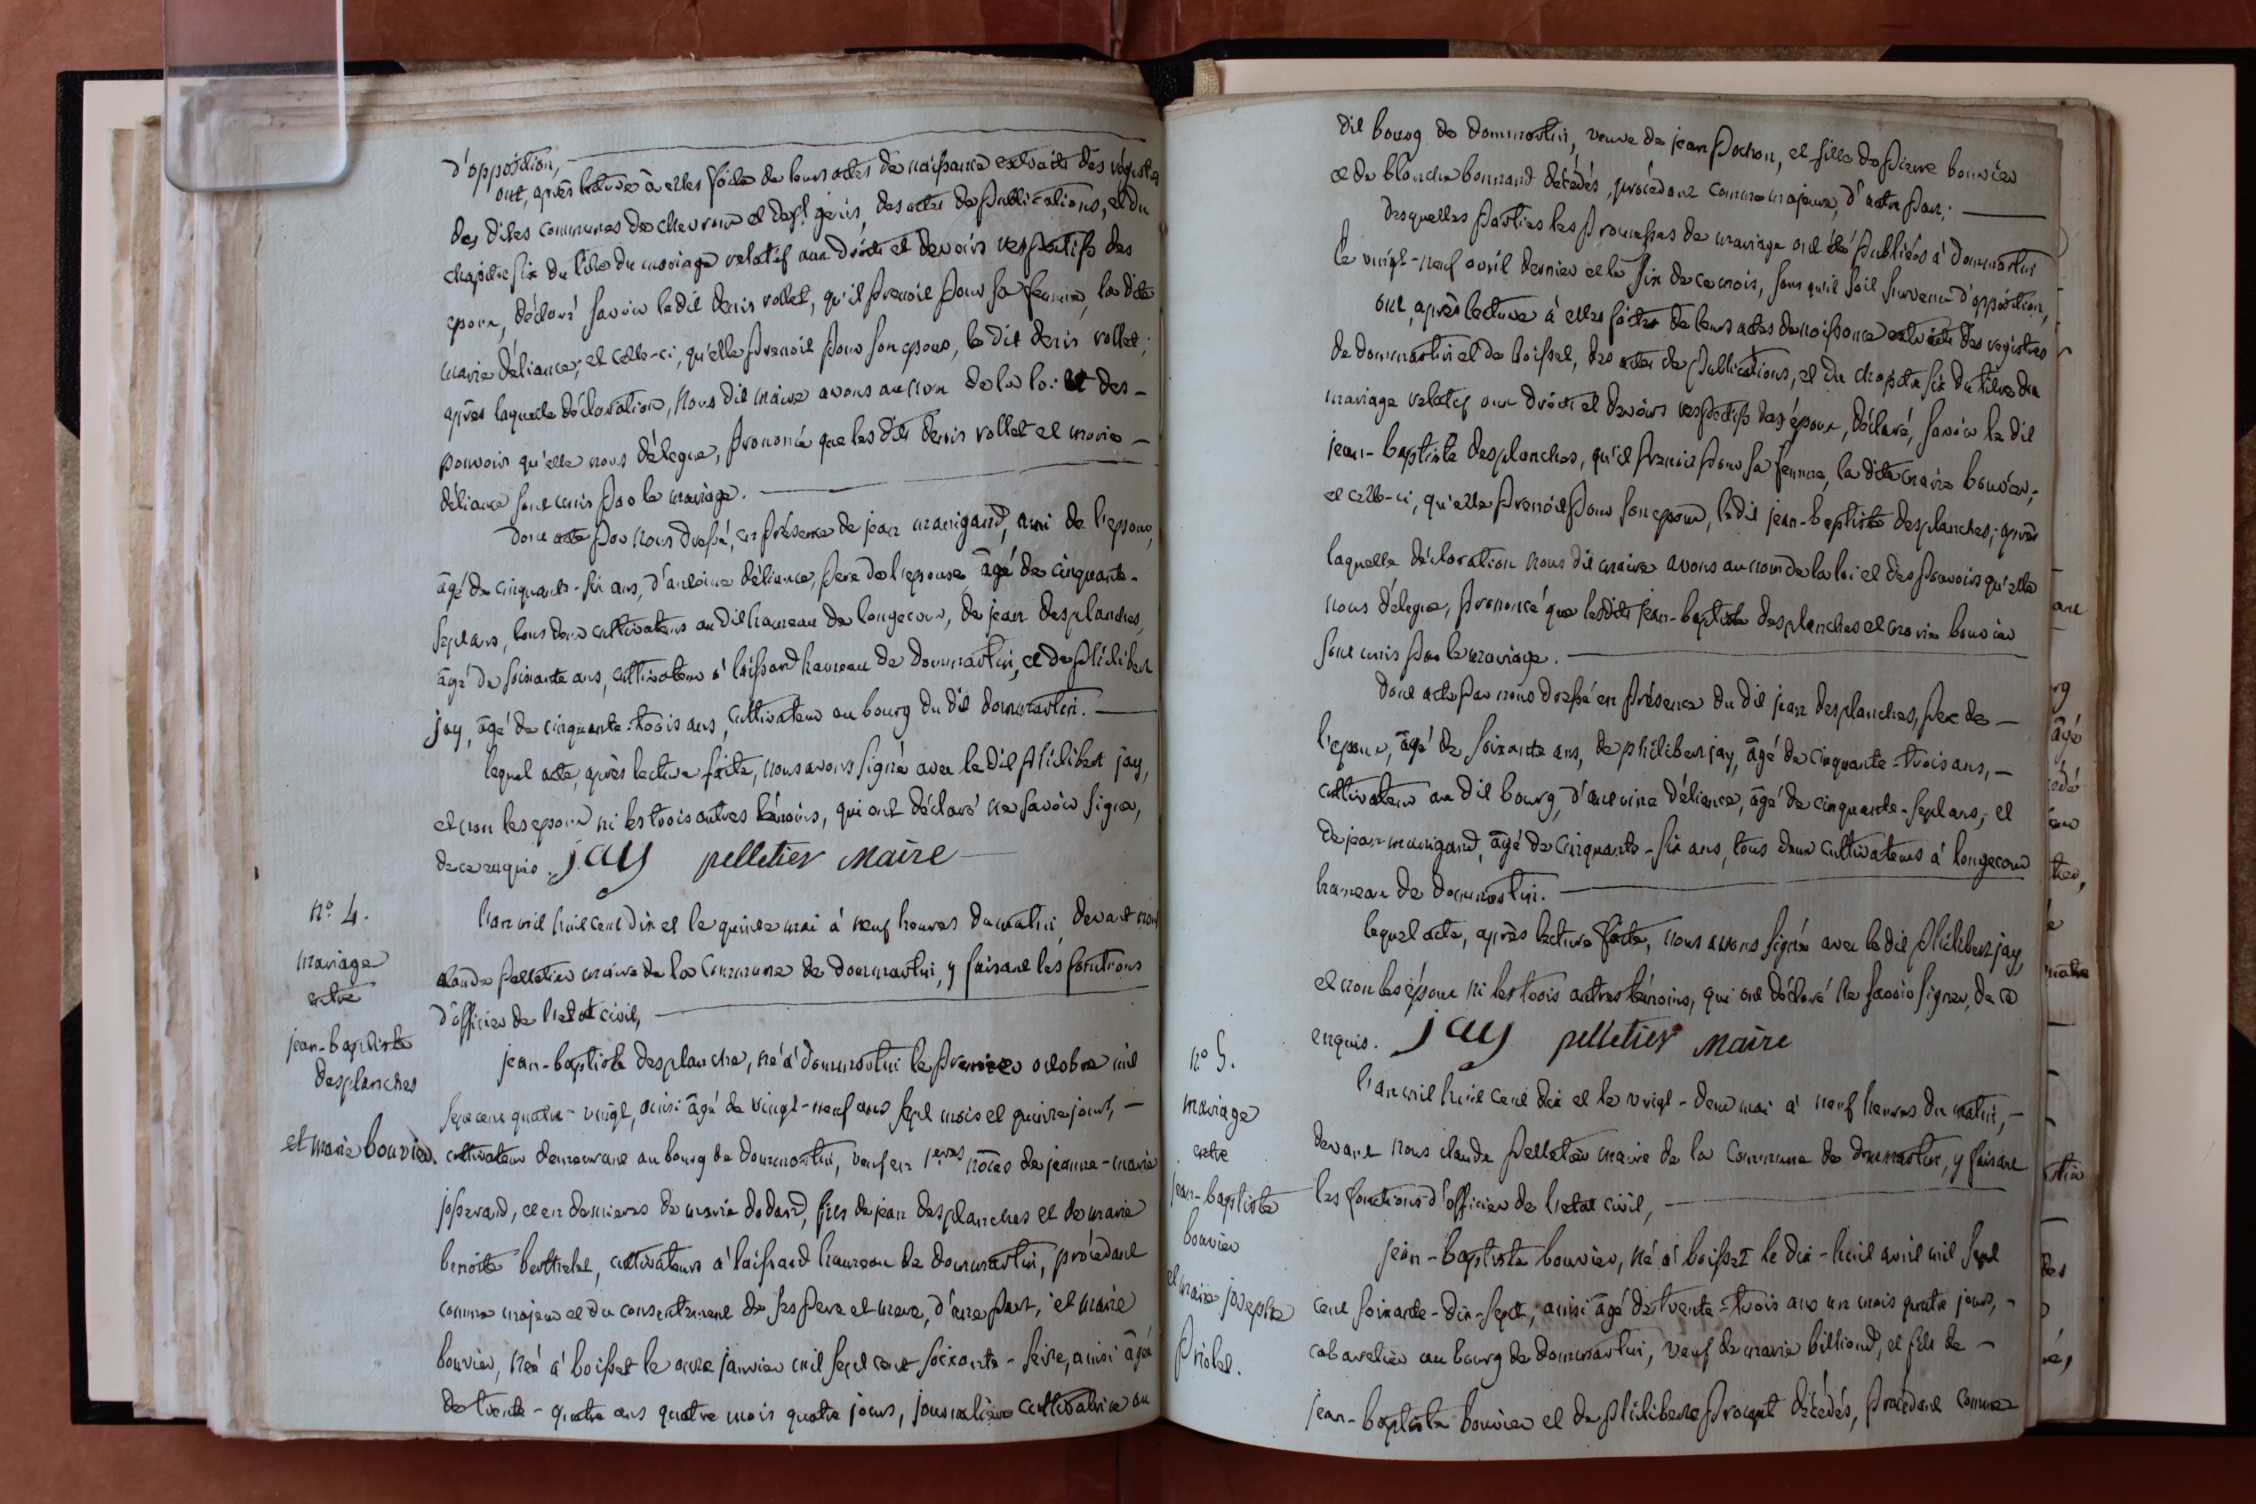 d'opposition,
ont, après lecture à elles faite de leurs actes de naissance extraits des régistres
des dites communes de chevroux et de st genis, des actes de publications, et du
chapitre six du titre du mariage relatif aux droits et devoirs respectifs des
epoux, déclaré savoir ledit denis rollet, qu'il prenoit pour sa femme, la dite
marie déliance; et celle-ci, qu'elle prenoit pour son epoux, le dit denis rollet;
après laquelle déclaration, nous dit maire avons au nom de la loi et des-
pouvoirs qu'elle nous délegue, prononcé que les dits denis rollet et marie -
déliance sont unis par le mariage.
dont acte par nous dressé, en présence de jean manigand, ami de l'epoux,
âgé de cinquante-six ans, d'antoine déliance, pere de l'epouse âgé de cinquante-
sept ans, tous deux cultivateurs au dit hameau de longecour, de jean desplanches,
âgé de soixante ans, cultivateur à loissard hameau de dommartin, et de philibert
jay, âgé de cinquante-trois ans, cultivateur au bourg du dit dommartin.
lequel acte, après lecture faite, nous avons signé avec le dit philibert jay,
et non les epoux ni les trois autres témoins, qui ont déclaré ne savoir signer,
de ce enquis. jay pelletier maire
n.o 4.
mariage
entre
jean-baptiste
desplanches
et marie bouvier.
l'an mil huit cent dix et le quinze mai à neuf heures du matin devant nous
claude pelletier maire de la commune de dommartin, y faisant les fonctions
d'officier de l'etat civil,
jean-baptiste desplanche, né à dommartin le premier octobre mil
sept cent quatre-vingt, ainsi âgé de vingt-neuf ans sept mois et quinze jours, -
cultivateur demeurant au bourg de dommartin, veuf en 1eres nôces de jeanne-marie
josserand, et en dernieres de marie dodard, fils de jean desplanches et de marie
benoite berthelet, cultivateurs à loissard hameau de dommartin, procédant
comme majeur et du consentement de ses pere et mere, d'une part, et marie
bouvier, née à boisset le onze janvier mil sept cent soixante-seize, ainsi âgée
de trente-quatre ans quatre mois quatre jours, journalière cultivatrice au
dit bourg de dommartin, veuve de jean pochon, et fille de pierre bouvier
et de blanche bonnand décédés, procédant comme majeure, d'autre part;
desquelles parties les promesses de mariage ont été publiées à dommartin
le vingt-neuf avril dernier et le six de ce mois, sans qu'il soit survenu d'opposition,
ont, après lecture à elles faites de leurs actes de naissance extraits des registres
de dommartin et de boisset, des actes de publications, et du chapitre six du titre du
mariage relatif aux droits et devoirs respectifs des époux, déclaré, savoir le dit
jean-baptiste desplanches, qu'il prenoit pour sa femme, la dite marie bouvier;
et celle-ci, qu'elle prenoit pour son epoux, le dit jean-baptiste desplanches; après
laquelle déclaration nous dit maire avons au nom de la loi et des pouvoirs qu'elle
nous délegue, prononcé que lesdits jean-baptiste desplanches et marie bouvier
sont unis par le mariage.
dont acte par nous dressé en présence du dit jean desplanches, pere de -
l'epoux, âgé de soixante ans, de philibert jay, âgé de cinquante-trois ans, -
cultivateur au dit bourg, d'antoine déliance, âgé de cinquante-sept ans, et
de jean manigand, âgé de cinquante-six ans, tous deux cultivateurs à longecour
hameau de dommartin.
lequel acte, après lecture faite, nous avons signé avec le dit philibert jay,
et non les époux ni les trois autres témoins, qui ont déclaré ne savoir signer, de ce
enquis. jay pelletier maire
n.o 5.
mariage
entre
jean-baptiste
bouvier
et marie josephte
priolet.
l'an mil huit cent dix et le vingt-deux mai à neuf heures du matin, -
devant nous claude pelletier maire de la commune de dommartin, y faisant
les fonctions d'officier de l'etat civil,
jean-baptiste bouvier, né à boisset le dix-huit avril mil sept
cent soixante-dix-sept, ainsi âgé de trente-trois ans un mois quatre jours, -
cabaretier au bourg de dommartin, veuf de marie billioud, et fils de -
jean-baptiste bouvier et de philiberte proupt décédés, procédant comme